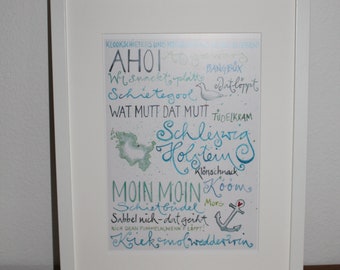 AHOI
BANGBÜX
Wi snackt platt
Schietegool
WAT MUTT DAT MUTT
TÜDELKRAM
Schleswig
Holstein
Klönschnack
MOIN MOIN
Kööm
Schietbüdel
Mors
Sabbel nich - dat geiht
Kiek mol wedder in